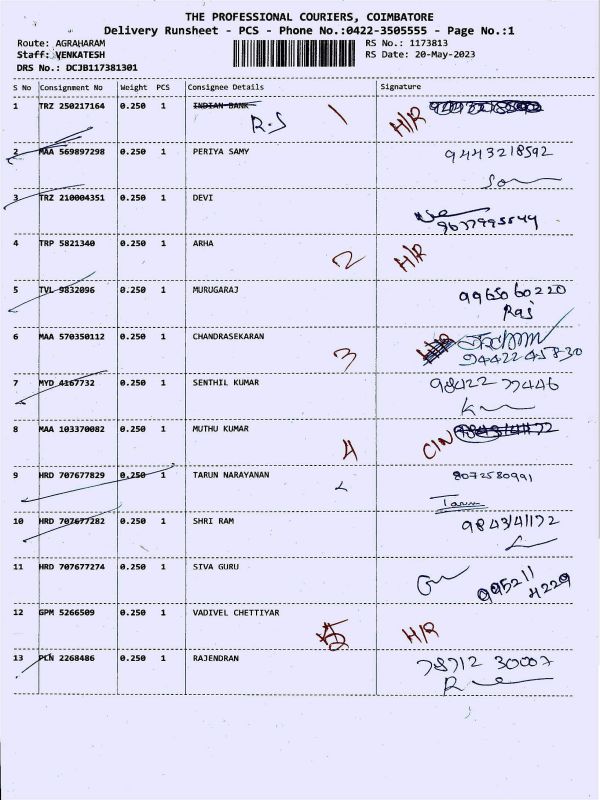 THE PROFESSIONAL COURIERS, COIMBATORE
Delivery Runsheet - PCS - Phone No.:0422-3505555 - Page No.:1
Route: AGRAHARAM RS No.: 1173813
Staff: VENKATESH RS Date: 20-May-2023
DRS No.: DCJB117381301
S No Consignment No Weight PCS Consignee Details Signature
1 TRZ 250217164 0.250 1 INDIAN BANK 1 H/R
R.S
2 MAA 569897298 0.250 1 PERIYA SAMY 9443218592
3 TRZ 210004351 0.250 1 DEVI
4 TRP 5821340 0.250 1 ARHA 2 H/R
5 TVL 9832096 0.250 1 MURUGARAJ 9965060220
Raj
6 MAA 570350112 0.250 1 CHANDRASEKARAN 3
9442245830
7 MYD 4167732 0.250 1 SENTHIL KUMAR 98422 77446
8 MAA 103370082 0.250 1 MUTHU KUMAR 4 C/N
9 HRD 707677829 0.250 1 TARUN NARAYANAN 8072580991
Tarun
10 HRD 707677282 0.250 1 SHRI RAM 9843141172
11 HRD 707677274 0.250 1 SIVA GURU 995211
4229
12 GPM 5266509 0.250 1 VADIVEL CHETTIYAR 5 H/R
13 PLN 2268486 0.250 1 RAJENDRAN 78712 30007